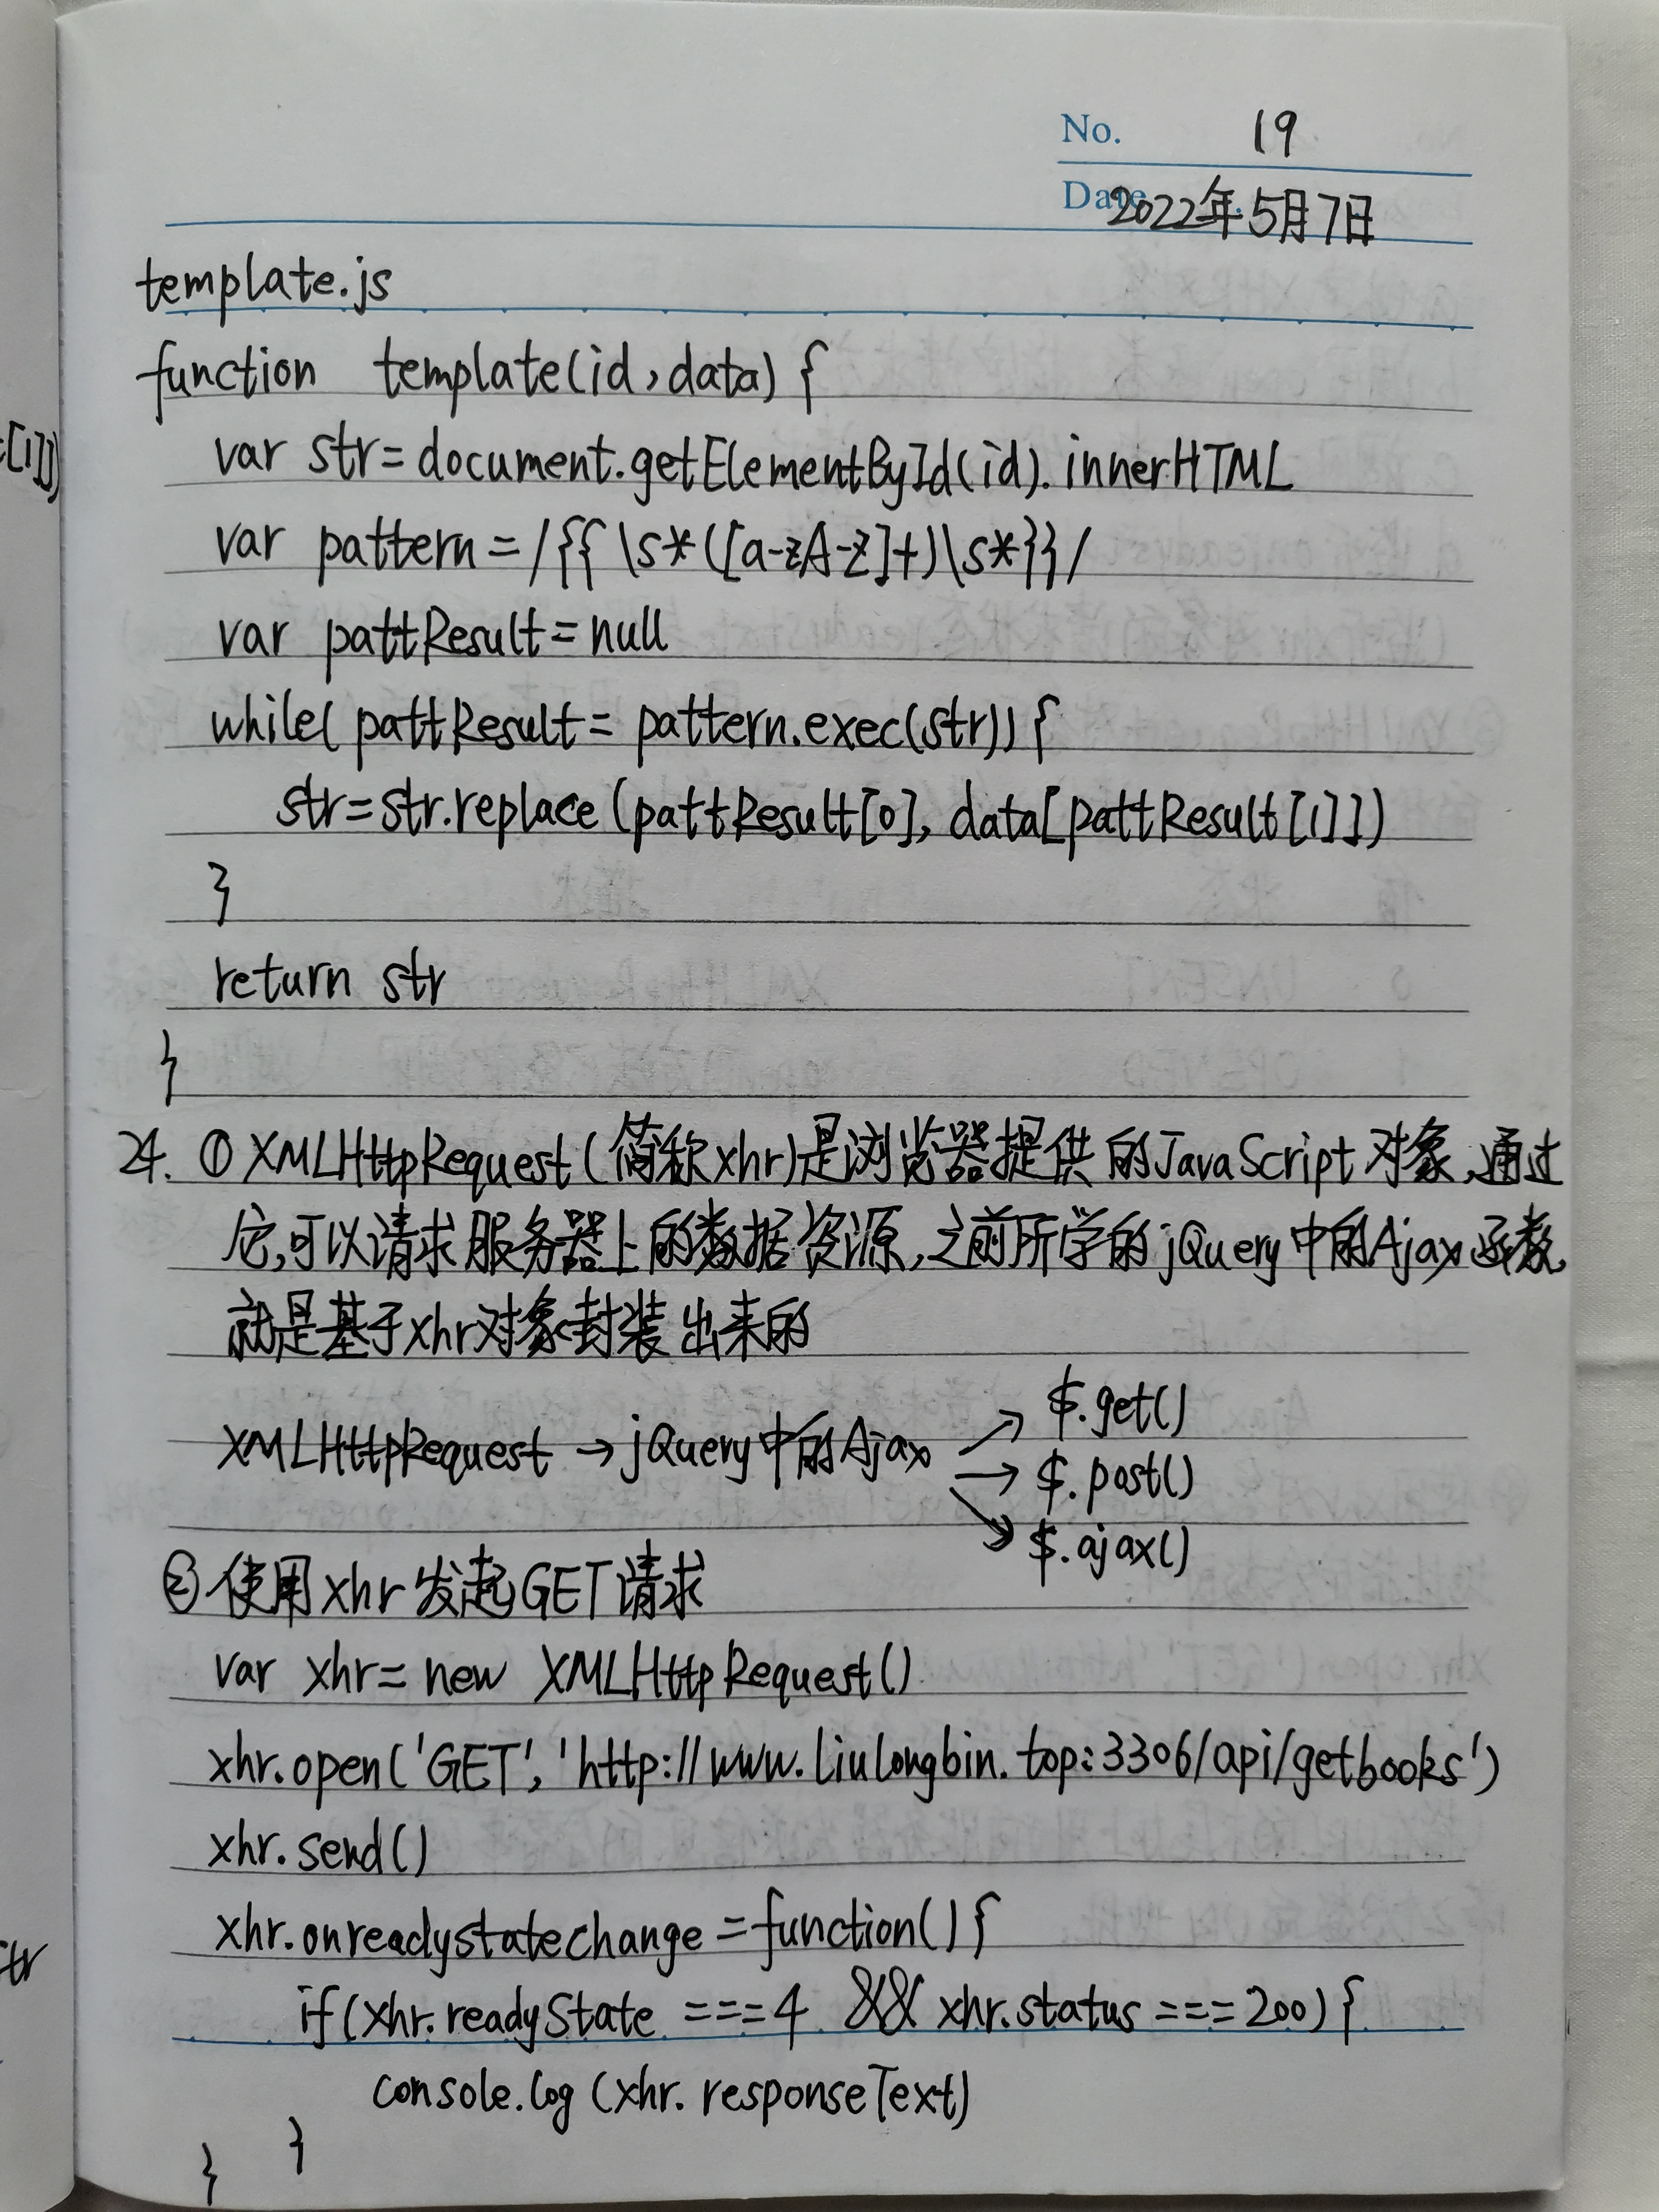 No. 19
Date 2022年5月7日
template.js
function template(id,data) {
var str=document.getElementById(id).innerHTML
var pattern=/{{\s*([a-zA-Z]+)\s*}}/
var pattResult=null
while(pattResult=pattern.exec(str)){
str=str.replace(pattResult[0],data[pattResult[1]])
}
return str
}
24. ①XMLHttpRequest(简称xhr)是浏览器提供的JavaScript对象,通过
它,可以请求服务器上的数据资源,之前所学的jQuery中的Ajax函数,
就是基于xhr对象封装出来的
$.get()
XMLHttpRequest→jQuery中的Ajax → $.post()
$.ajax()
②使用xhr发起GET请求
var xhr=new XMLHttpRequest()
xhr.open('GET','http://www.liulongbin.top:3306/api/getbooks')
xhr.send()
xhr.onreadystatechange=function(){
if(xhr.readyState ===4 && xhr.status===200){
console.log(xhr.responseText)
}
}